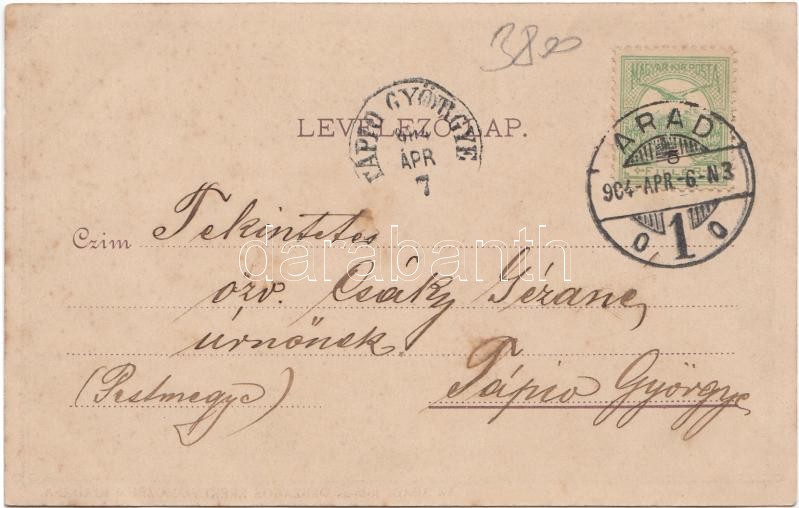 3800
MAGYAR KIR. POSTA
ARAD
904-APR-6-N3
1
TÁPIÓ GYÖRGYE
904
ÁPR
7
LEVELEZŐ-LAP.
Czim
Tekintetes
özv. Csáky Gézáné
úrnőnek
(Pestmegye)
Tápió Györgye
darabanth